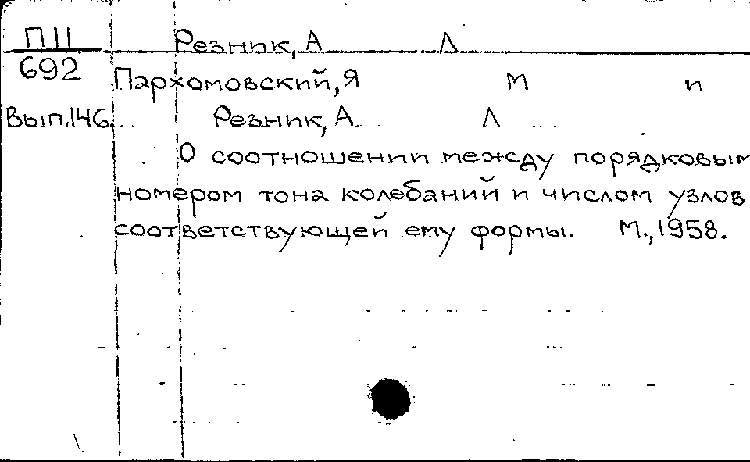 П11 Резник, А Л
692 Пархомовский, Я М и
Вып.146. Резник, А. Л
О соотношении между порядковым
номером тона колебаний и числом узлов
соответствующей ему формы. М., 1958.